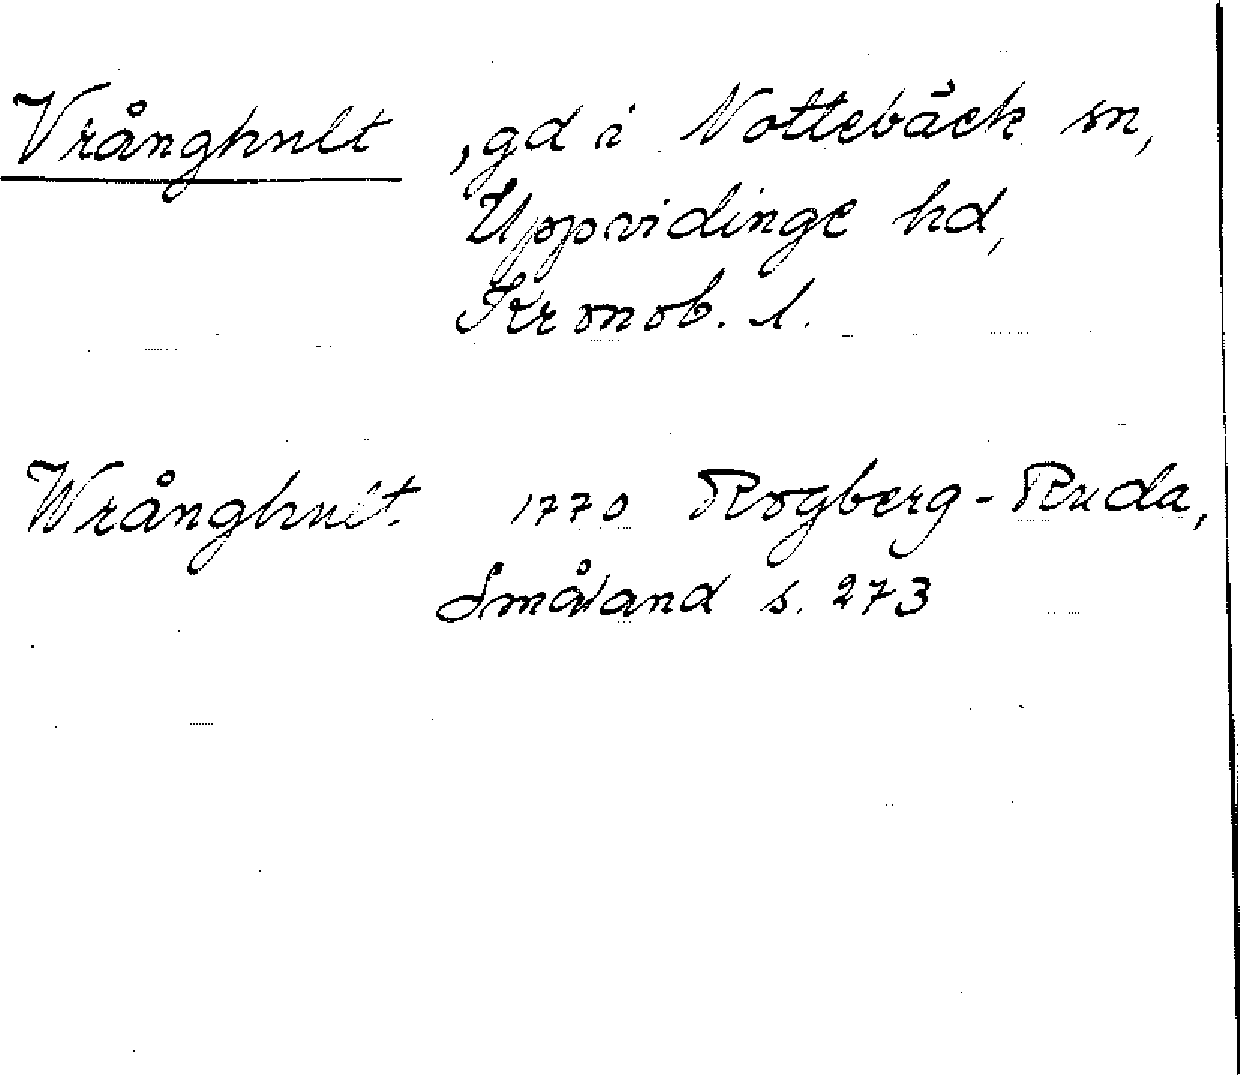 Vrånghult , gd i Nottebäck sn,
Uppvidinge hd,
Kronob. l.
Wrånghult. 1770 Rogberg-Ruda,
Småland s. 273